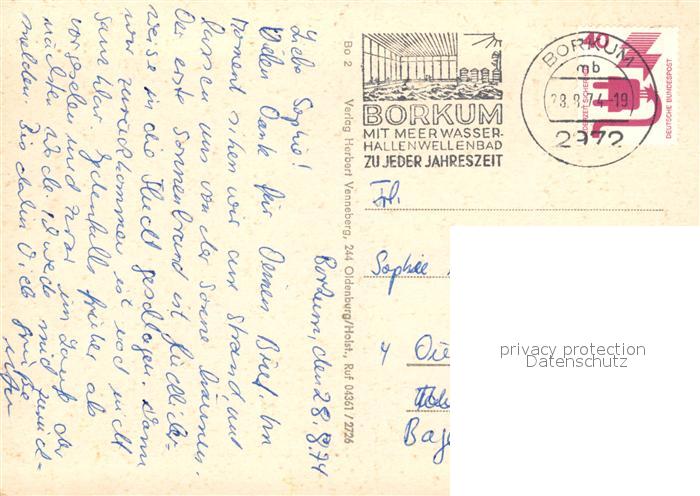 Borkum, den 28.8.74
Liebe Sophie!
Vielen Dank für Deinen Brief. Im
Moment sitzen wir am Strand und
lassen uns von der Sonne bräunen.
Der erste Sonnenbrand ist glücklicher-
weise in die Flucht geschlagen. Wann
wir zurückkommen ist noch nicht
ganz klar. Jedenfalls früher als
vorgesehen und zwar im Laufe der
nächsten Woche. Ich werde mich zurück-
melden. Bis dahin Dich
Bo 2
Verlag Herbert Venneberg, 244 Oldenburg/Holst., Ruf 04361/2726
BORKUM
MIT MEERWASSER-
HALLENWELLENBAD
ZU JEDER JAHRESZEIT
BORKUM
mb
28.8.74-19
2972
40
JEDERZEIT SICHERHEIT
DEUTSCHE BUNDESPOST
Frl.
Sophie
4
privacy protection
Datenschutz